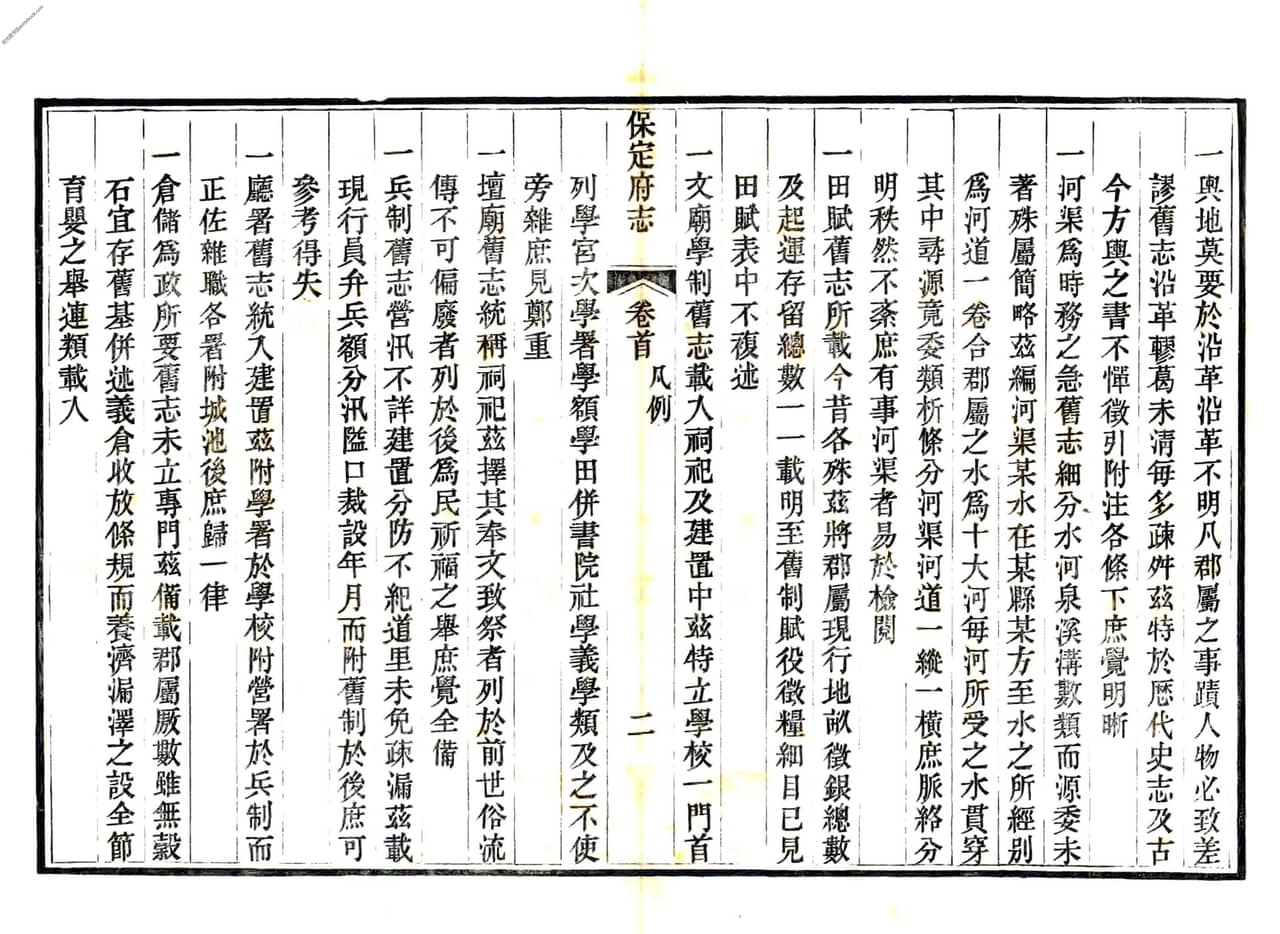 一輿地莫要於沿革沿革不明凡郡屬之事蹟人物必致差
謬舊志沿革轇葛未清每多疎舛茲特於歷代史志及古
今方輿之書不憚徵引附注各條下庶覺明晰
一河渠爲時務之急舊志細分水河泉溪溝數類而源委未
著殊屬簡略茲編河渠某水在某縣某方至水之所經别
爲河道一卷合郡屬之水爲十大河每河所受之水貫穿
其中尋源竟委類析條分河渠河道一縱一橫庶脈絡分
明秩然不紊庶有事河渠者易於檢閱
一田賦舊志所載今昔各殊茲將郡屬現行地畝徵銀總數
及起運存留總數一一載明至舊制賦役徵糧細目已見
田賦表中不複述
一文廟學制舊志載入祠祀及建置中茲特立學校一門首
保定府志 卷首 凡例 二
列學宮次學署學額學田併書院社學義學類及之不使
旁雜庶見鄭重
一壇廟舊志統稱祠祀茲擇其奉文致祭者列於前世俗流
傳不可偏廢者列於後爲民祈福之舉庶覺全備
一兵制舊志營汛不詳建置分防不紀道里未免疎漏茲載
現行員弁兵額分汛隘口裁設年月而附舊制於後庶可
參考得失
一廳署舊志統入建置茲附學署於學校附營署於兵制而
正佐雜職各署附城池後庶歸一律
一倉儲爲政所要舊志未立專門茲備載郡屬厫數雖無穀
石宜存舊基併述義倉收放條規而養濟漏澤之設全節
育嬰之舉連類載入